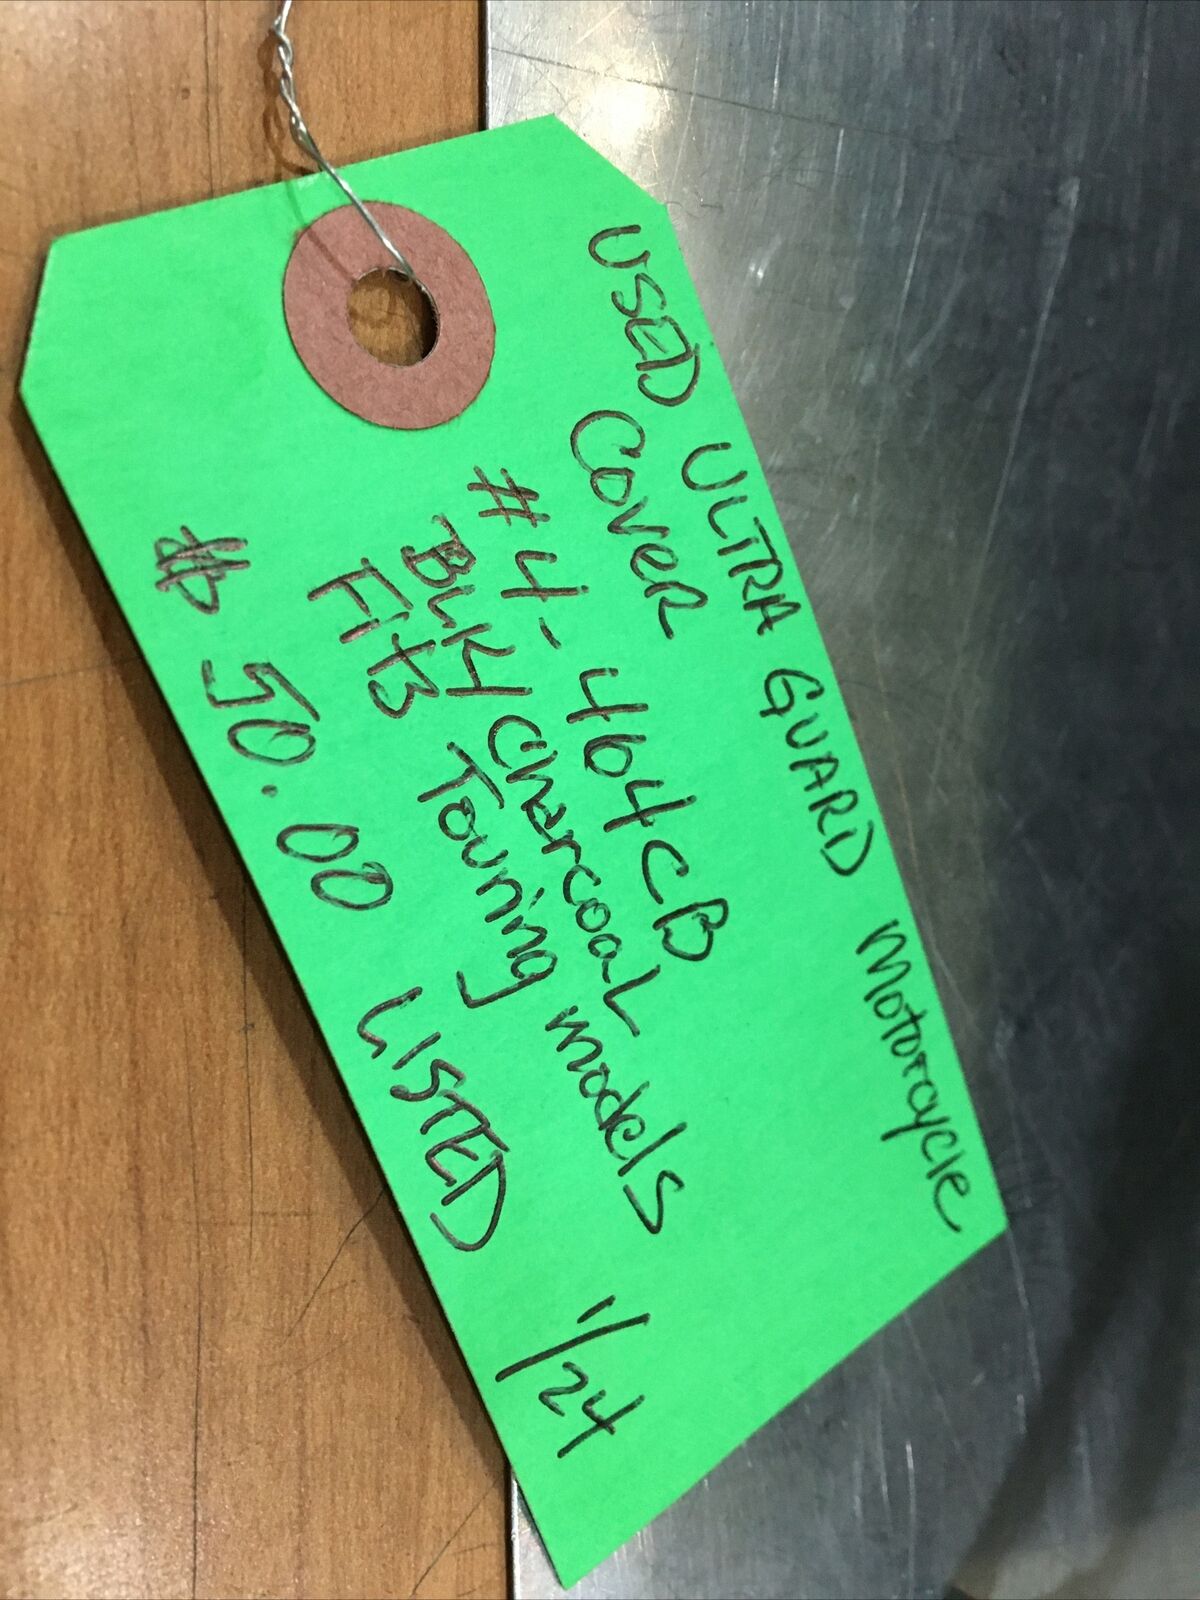 USED ULTRA GUARD Motorcycle
COVER
#4-464CB
BLK/CharcoaL
Fits Touring models
$50.00 LISTED 1/24